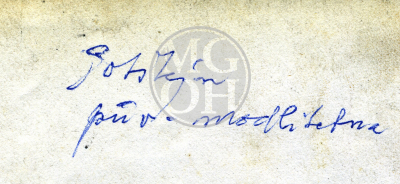 Potštejn
pův. modlitebna
MG
OH